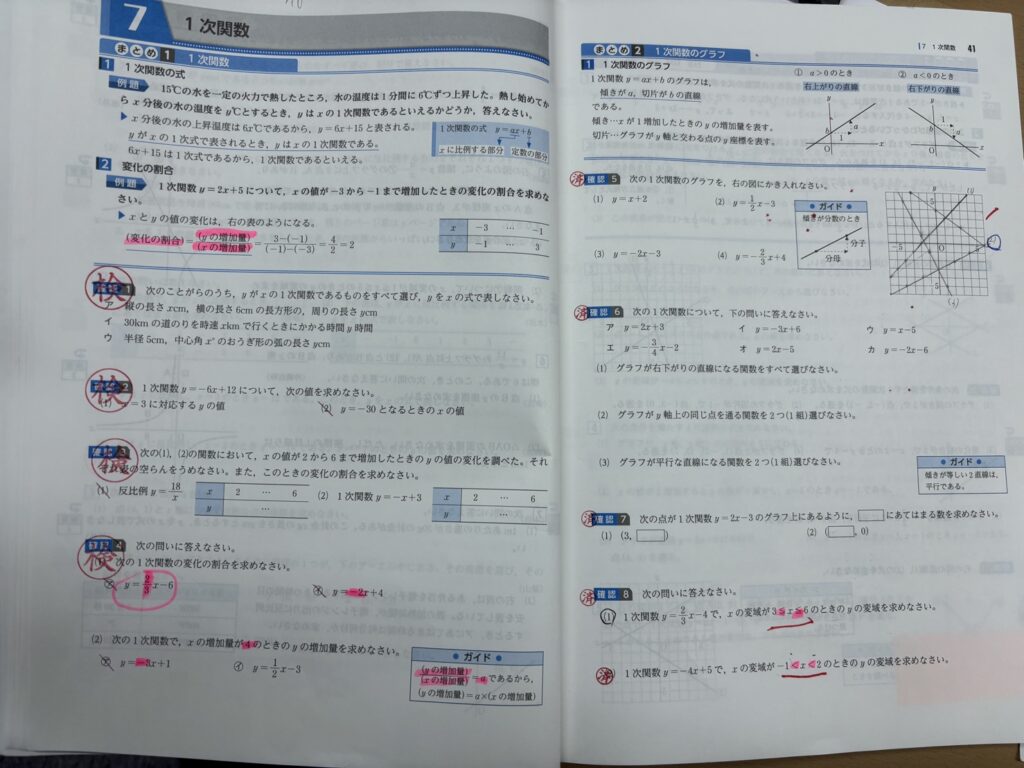 7 1次関数
まとめ 1 1次関数
1 1次関数の式
例題 15℃の水を一定の火力で熱したところ，水の温度は1分間に6℃ずつ上昇した。熱し始めてか
ら x 分後の水の温度を y℃とするとき，y は x の1次関数であるといえるかどうか，答えなさい。
▶ x 分後の水の上昇温度は6x℃であるから，y=6x+15 と表される。
y が x の1次式で表されるとき，y は x の1次関数である。
6x+15 は1次式であるから，1次関数であるといえる。
1次関数の式 y=ax+b
xに比例する部分 定数の部分
2 変化の割合
例題 1次関数 y=2x+5 について，x の値が−3から−1まで増加したときの変化の割合を求めな
さい。
▶ x と y の値の変化は，右の表のようになる。
(変化の割合)=(yの増加量)/(xの増加量)=3−(−1)/(−1)−(−3)=4/2=2
x −3 … −1
y −1 … 3
検
1 次のことがらのうち，y が x の1次関数であるものをすべて選び，y を x の式で表しなさい。
ア 縦の長さ xcm，横の長さ 6cm の長方形の，周りの長さ ycm
イ 30km の道のりを時速 xkm で行くときにかかる時間 y 時間
ウ 半径 5cm，中心角 x°のおうぎ形の弧の長さ ycm
検
2 1次関数 y=−6x+12 について，次の値を求めなさい。
(1) x=3 に対応する y の値 (2) y=−30 となるときの x の値
検
3 次の(1)，(2)の関数において，x の値が 2 から 6 まで増加したときの y の値の変化を調べた。それ
ぞれの表の空らんをうめなさい。また，このときの変化の割合を求めなさい。
(1) 反比例 y=18/x x 2 … 6 (2) 1次関数 y=−x+3 x 2 … 6
y … y …
検
確認 4 次の問いに答えなさい。
(1) 次の1次関数の変化の割合を求めなさい。
y=2/3x−6 y=−2x+4
(2) 次の1次関数で，x の増加量が 4 のときの y の増加量を求めなさい。
y=−3x+1 イ y=1/2x−3
ガイド
(yの増加量)/(xの増加量)=a であるから，
(yの増加量)=a×(xの増加量)
7 1次関数 41
まとめ 2 1次関数のグラフ
1 1次関数のグラフ
1次関数 y=ax+b のグラフは，
傾きが a，切片が b の直線
である。
傾き…x が1増加したときの y の増加量を表す。
切片…グラフが y 軸と交わる点の y 座標を表す。
① a>0 のとき
右上がりの直線
② a<0 のとき
右下がりの直線
済 確認 5 次の1次関数のグラフを，右の図にかき入れなさい。
(1) y=x+2 (2) y=1/2x−3
(3) y=−2x−3 (4) y=−2/3x+4
ガイド
傾きが分数のとき
分子
分母
済 確認 6 次の1次関数について，下の問いに答えなさい。
ア y=2x+3 イ y=−3x+6 ウ y=x−5
エ y=−3/4x−2 オ y=2x−5 カ y=−2x−6
(1) グラフが右下がりの直線になる関数をすべて選びなさい。
(2) グラフが y 軸上の同じ点を通る関数を2つ(1組)選びなさい。
(3) グラフが平行な直線になる関数を2つ(1組)選びなさい。
ガイド
傾きが等しい2直線は，
平行である。
済 確認 7 次の点が1次関数 y=2x−3 のグラフ上にあるように，□にあてはまる数を求めなさい。
(1) (3, □) (2) (□, 0)
済 確認 8 次の問いに答えなさい。
(1) 1次関数 y=2/3x−4 で，x の変域が 3≦x≦6 のときの y の変域を求めなさい。
済 1次関数 y=−4x+5 で，x の変域が −1≦x≦2 のときの y の変域を求めなさい。